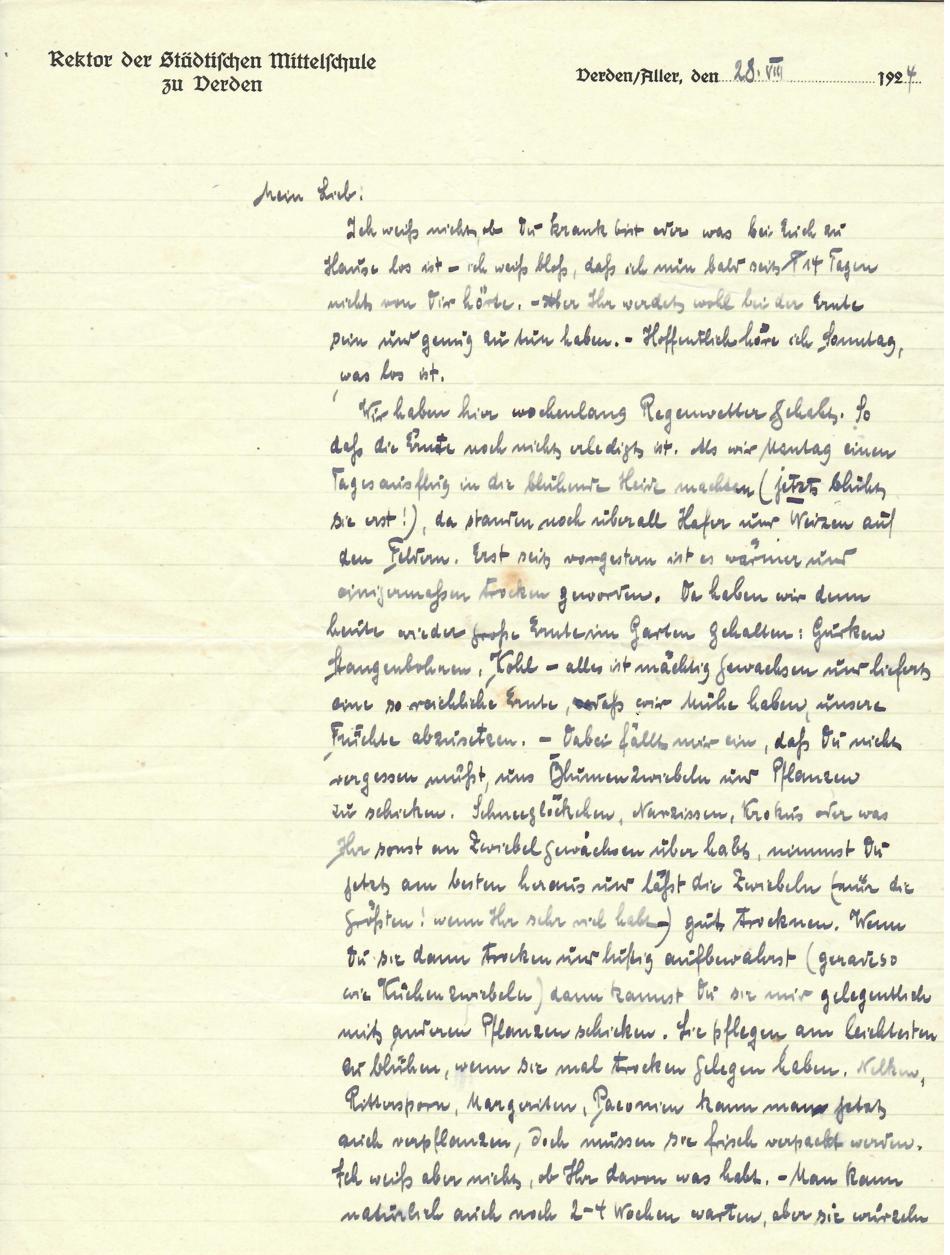 Rektor der Städtischen Mittelschule
zu Verden
Verden/Aller, den 28. VIII 1924
Mein Lieb!
Ich weiß nicht, ob Du krank bist oder was bei Euch zu
Hause los ist – ich weiß bloß, daß ich nun bald seit 14 Tagen
nichts von Dir hörte. – Aber Ihr werdet wohl bei der Ernte
sein und genug zu tun haben. – Hoffentlich höre ich Sonntag,
was los ist.
Wir haben hier wochenlang Regenwetter gehabt. So
daß die Ernte noch nicht erledigt ist. Als wir Montag einen
Tagesausflug in die blühende Heide machten (jetzt blüht
sie erst!), da standen noch überall Hafer und Weizen auf
den Feldern. Erst seit vorgestern ist es wärmer und
einigermaßen trocken geworden. Da haben wir denn
heute wieder große Ernte im Garten gehalten: Gurken
Stangenbohnen, Kohl – alles ist mächtig gewachsen und liefert
eine so reichliche Ernte, daß wir Mühe haben, unsere
Früchte abzusetzen. – Dabei fällt mir ein, daß Du nicht
vergessen mußt, uns Blumenzwiebeln und Pflanzen
zu schicken. Schneeglöckchen, Narzissen, Krokus oder was
Ihr sonst an Zwiebelgewächsen über habt, nimmst Du
jetzt am besten heraus und läßt die Zwiebeln (nur die
größten! wenn Ihr sehr viel habt) gut trocknen. Wenn
Du sie dann trocken und luftig aufbewahrst (geradeso
wie Küchenzwiebeln) dann kannst Du sie mir gelegentlich
mit anderen Pflanzen schicken. Sie pflegen am leichtesten
zu blühen, wenn sie mal trocken gelegen haben. Nelken,
Rittersporn, Margeriten, Paeonien kann man jetzt
auch verpflanzen, doch müssen sie frisch verpackt werden.
Ich weiß aber nicht, ob Ihr davon was habt. – Man kann
natürlich auch noch 2–4 Wochen warten, aber sie wurzeln